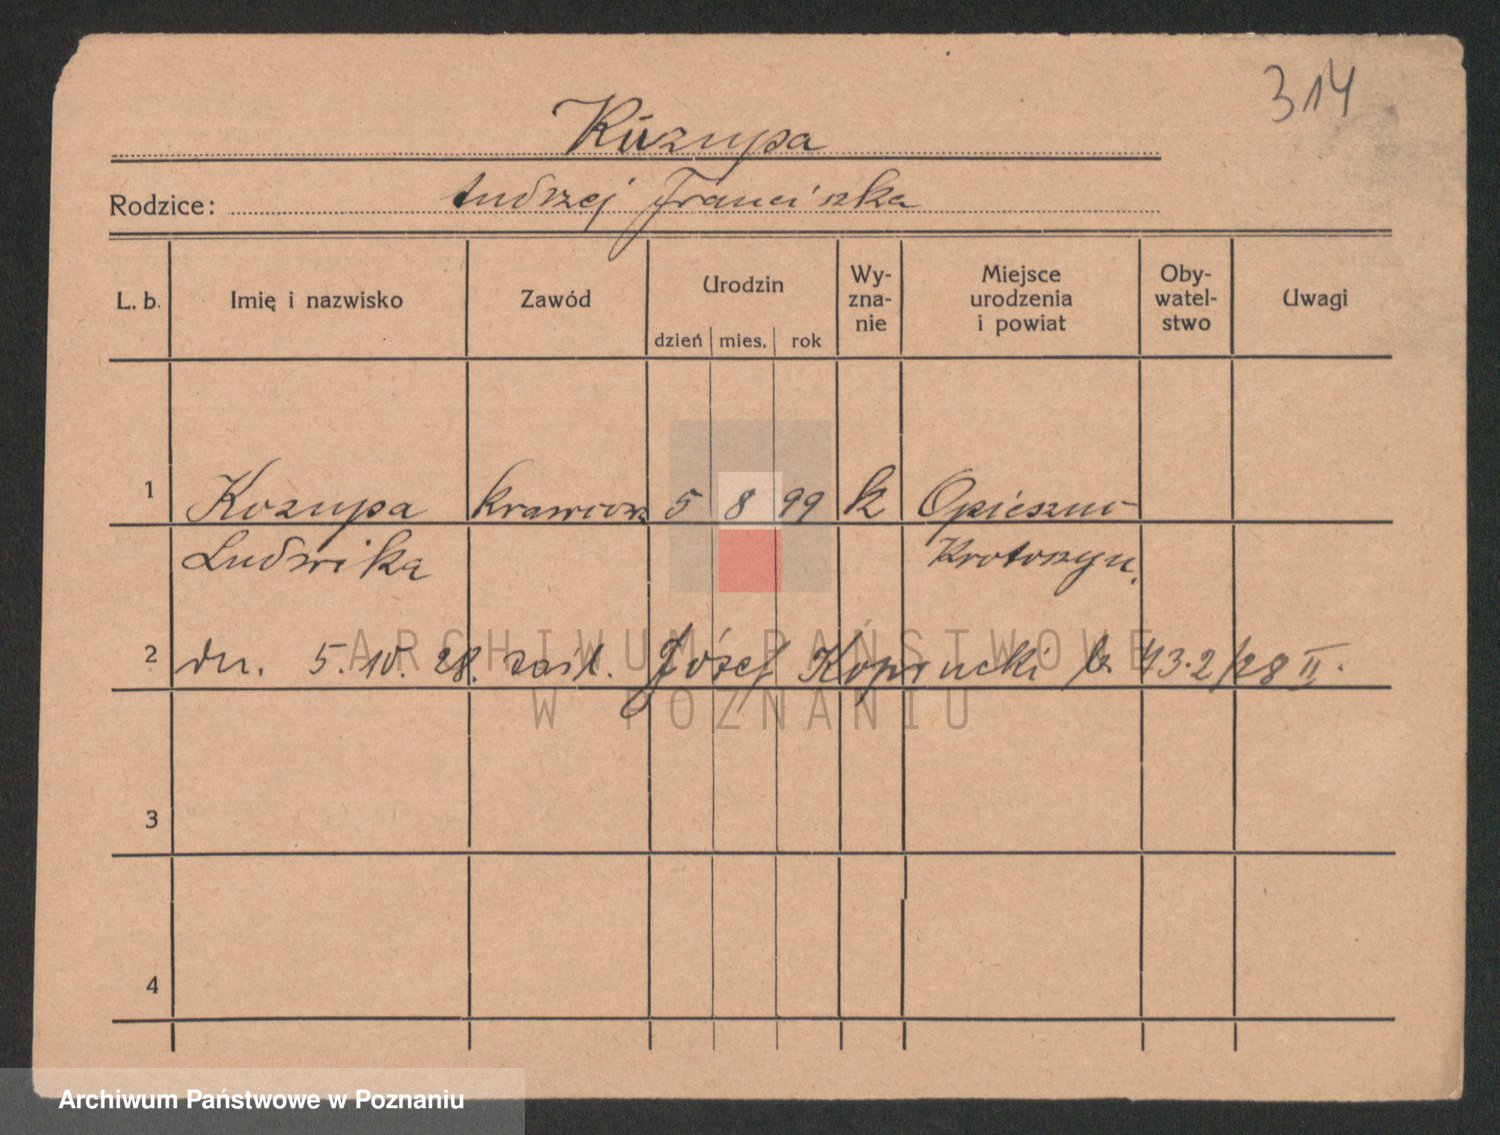 314
Kozupa
Rodzice: Andrzej Franciszka
L. b. Imię i nazwisko Zawód Urodzin dzień mies. rok Wy-zna-nie Miejsce urodzenia i powiat Oby-watel-stwo Uwagi
1 Kozupa krawcowa 5 8 99 k Opieszno
Ludwika Krotoszyn.
2 dn. 5.10.28. zaśl. Józef 43.2/28 II.
ARCHIWUM PAŃSTWOWE
W POZNANIU
3
4
Archiwum Państwowe w Poznaniu